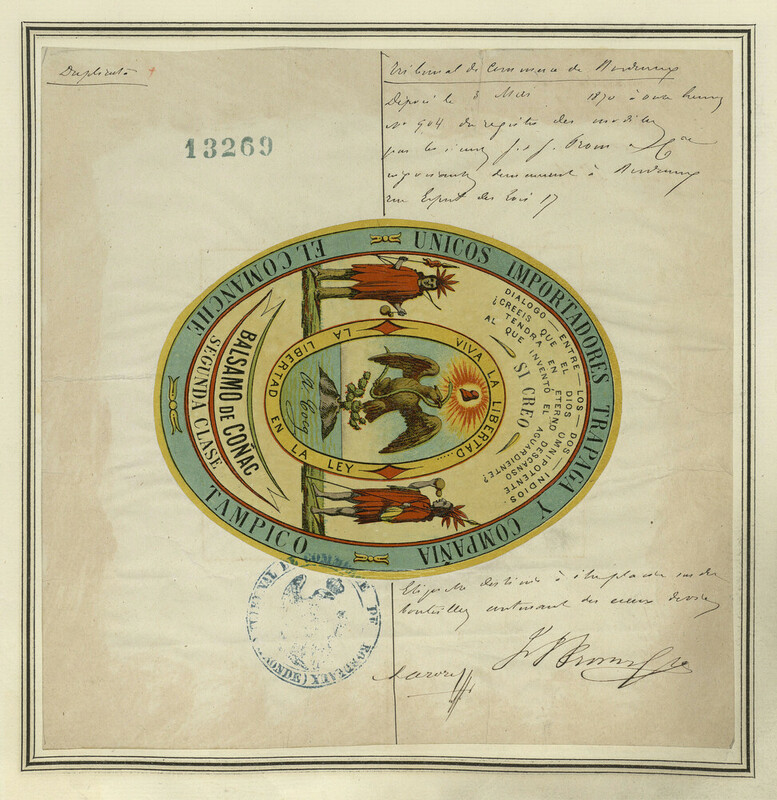 Duplicata
Tribunal de Commerce de Bordeaux
Déposé le 3 Mai 1870 à onze heures
No 904 du registre des modèles
par les sieurs J. & J. Prom & Cie
négociants demeurant à Bordeaux
rue Esprit des Lois 17
13269
EL COMANCHE
UNICOS IMPORTADORES TRAPAGA Y COMPAÑIA
TAMPICO
BALSAMO DE CONAC
SEGUNDA CLASE
DIALOGO — ENTRE — LOS — DOS — INDIOS.
¿CREEIS QUE EL DIOS OMNIPOTENTE
TENDRA EN ETERNO DESCANSO
AL QUE INVENTÓ EL AGUARDIENTE?
SI CREO
VIVA LA LIBERTAD.....
LA LIBERTAD EN LA LEY
Etiquette destinée à être placée sur des
bouteilles contenant des eaux de vie
TRIBUNAL DE COMMERCE DE BORDEAUX (GIRONDE)